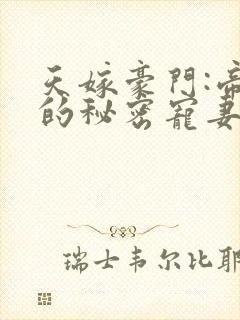 天嫁豪門:帝
的秘密寵妻
瑞士韦尔比耶